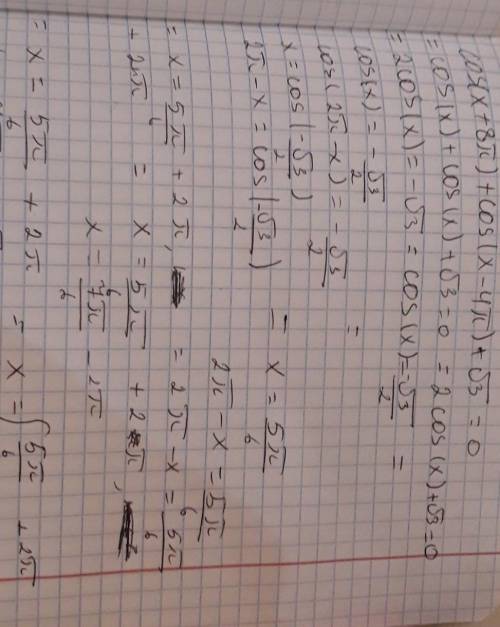 cos(x+8π)+cos(x-4π)+√3 = 0
= cos(x)+cos(x)+√3=0 = 2cos(x)+√3=0
= 2cos(x)=-√3 = cos(x)=-√3/2 =
cos(x)=-√3/2
cos(2π-x)=-√3/2 =
x=cos(-√3/2) = x=5π/6
2π-x=cos(-√3/2) 2π-x=5π/6
= x=5π/6+2π, = 2π-x=5π/6
+2π = x=5π/6+2π,
x=7π/6-2π
= x=5π/6+2π = x=∫5π/6+2π